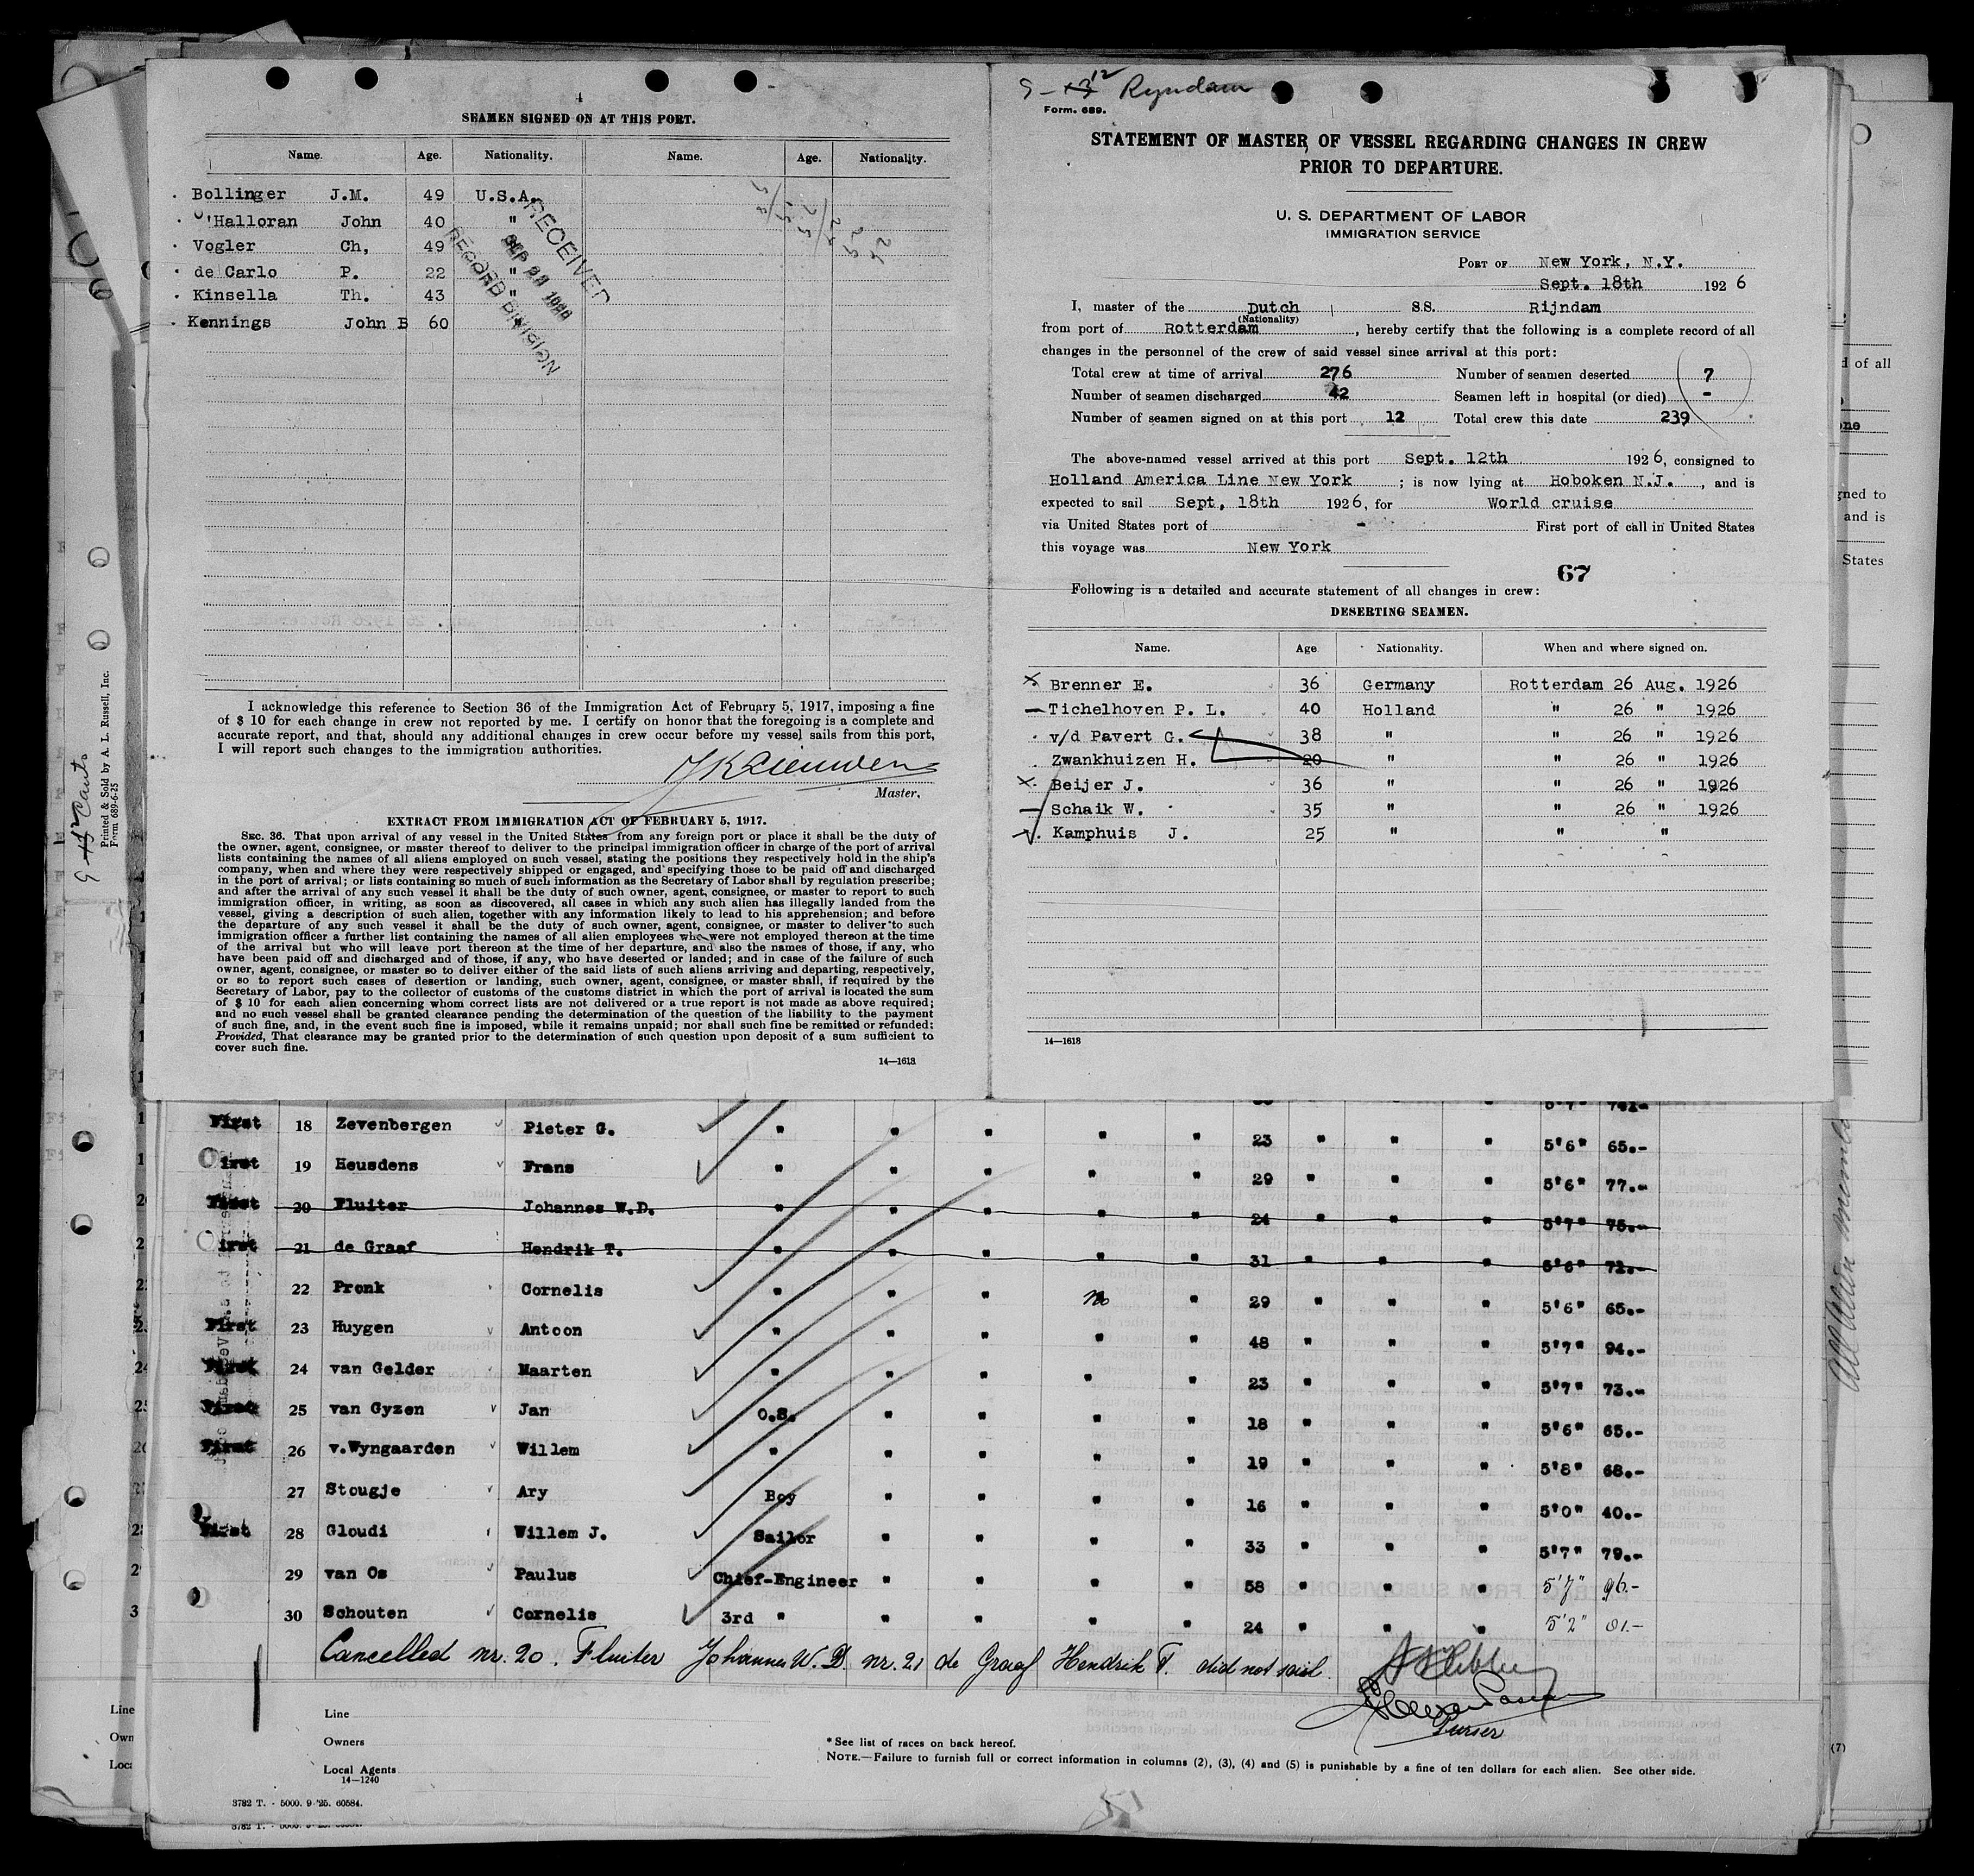 SEAMEN SIGNED ON AT THIS PORT.
Name. Age. Nationality. Name. Age. Nationality.
Bollinger J.M. 49 U.S.A.
O'Halloran John 40 "
Vogler Ch, 49 "
de Carlo P. 22 "
Kinsella Th. 43 "
Kennings John B 60 "
RECEIVED
RECORD DIVISION
I acknowledge this reference to Section 36 of the Immigration Act of February 5, 1917, imposing a fine
of $ 10 for each change in crew not reported by me. I certify on honor that the foregoing is a complete and
accurate report, and that, should any additional changes in crew occur before my vessel sails from this port,
I will report such changes to the immigration authorities.
Master.
EXTRACT FROM IMMIGRATION ACT OF FEBRUARY 5, 1917.
SEC. 36. That upon arrival of any vessel in the United States from any foreign port or place it shall be the duty of
the owner, agent, consignee, or master thereof to deliver to the principal immigration officer in charge of the port of arrival
lists containing the names of all aliens employed on such vessel, stating the positions they respectively hold in the ship's
company, when and where they were respectively shipped or engaged, and specifying those to be paid off and discharged
in the port of arrival; or lists containing so much of such information as the Secretary of Labor shall by regulation prescribe;
and after the arrival of any such vessel it shall be the duty of such owner, agent, consignee, or master to report to such
immigration officer, in writing, as soon as discovered, all cases in which any such alien has illegally landed from the
vessel, giving a description of such alien, together with any information likely to lead to his apprehension; and before
the departure of any such vessel it shall be the duty of such owner, agent, consignee, or master to deliver to such
immigration officer a further list containing the names of all alien employees who were not employed thereon at the time
of the arrival but who will leave port thereon at the time of her departure, and also the names of those, if any, who
have been paid off and discharged and of those, if any, who have deserted or landed; and in case of the failure of such
owner, agent, consignee, or master so to deliver either of the said lists of such aliens arriving and departing, respectively,
or so to report such cases of desertion or landing, such owner, agent, consignee, or master shall, if required by the
Secretary of Labor, pay to the collector of customs of the customs district in which the port of arrival is located the sum
of $ 10 for each alien concerning whom correct lists are not delivered or a true report is not made as above required;
and no such vessel shall be granted clearance pending the determination of the question of the liability to the payment
of such fine, and, in the event such fine is imposed, while it remains unpaid; nor shall such fine be remitted or refunded:
Provided, That clearance may be granted prior to the determination of such question upon deposit of a sum sufficient to
cover such fine.
14—1618
Printed & Sold by A. L. Russell, Inc.
Form 689-6-25
12 Ryndam
Form. 689.
STATEMENT OF MASTER OF VESSEL REGARDING CHANGES IN CREW
PRIOR TO DEPARTURE.
U. S. DEPARTMENT OF LABOR
IMMIGRATION SERVICE
PORT OF New York, N.Y.
Sept. 18th 1926
I, master of the Dutch SS. Rijndam
(Nationality)
from port of Rotterdam, hereby certify that the following is a complete record of all
changes in the personnel of the crew of said vessel since arrival at this port:
Total crew at time of arrival 276 Number of seamen deserted 7
Number of seamen discharged 42 Seamen left in hospital (or died) -
Number of seamen signed on at this port 12 Total crew this date 239
The above-named vessel arrived at this port Sept. 12th 1926, consigned to
Holland America Line New York ; is now lying at Hoboken N.J. , and is
expected to sail Sept, 18th 1926, for World cruise
via United States port of - First port of call in United States
this voyage was New York
67
Following is a detailed and accurate statement of all changes in crew:
DESERTING SEAMEN.
Name. Age Nationality. When and where signed on.
Brenner E. 36 Germany Rotterdam 26 Aug. 1926
Tichelhoven P. L. 40 Holland " 26 " 1926
v/d Pavert G. 38 " " 26 " 1926
Zwankhuizen H. 20 " " 26 " 1926
Beijer J. 36 " " 26 " 1926
Schaik W. 35 " " 26 " 1926
Kamphuis J. 25 " " "
14—1618
First 18 Zevenbergen Pieter G. " " " " " 23 " " " 5'6" 65.-
First 19 Heusdens Frans " " " " " 29 " " " 5'6" 77.-
First 20 Fluiter Johannes W.D. " " " " " 24 " " " 5'7" 75.-
First 21 de Graaf Hendrik T. " " " " " 31 " " " 5'6" 71.-
22 Pronk Cornelis " " " no " 29 " " " 5'6" 65.-
First 23 Huygen Antoon " " " " " 48 " " " 5'7" 94.-
First 24 van Gelder Maarten " " " " " 23 " " " 5'7" 73.-
First 25 van Gyzen Jan O.S. " " " " 18 " " " 5'6" 65.-
First 26 v.Wyngaarden Willem " " " " " 19 " " " 5'8" 68.-
27 Stougje Ary Boy " " " " 16 " " " 5'0" 40.-
First 28 Gloudi Willem J. Sailor " " " " 33 " " " 5'7" 79.-
29 van Os Paulus Chief-Engineer " " " " 58 " " " 5'7" 96.-
30 Schouten Cornelis 3rd " " " " " 24 " " " 5'2" 81.-
Cancelled nr. 20. Fluiter Johannes W. D. nr. 21 de Graaf Hendrik T. did not sail.
Purser
Line
Owners
Local Agents
14—1240
* See list of races on back hereof.
NOTE.—Failure to furnish full or correct information in columns (2), (3), (4) and (5) is punishable by a fine of ten dollars for each alien. See other side.
3782 T. - 5000. 9-'25. 60584.